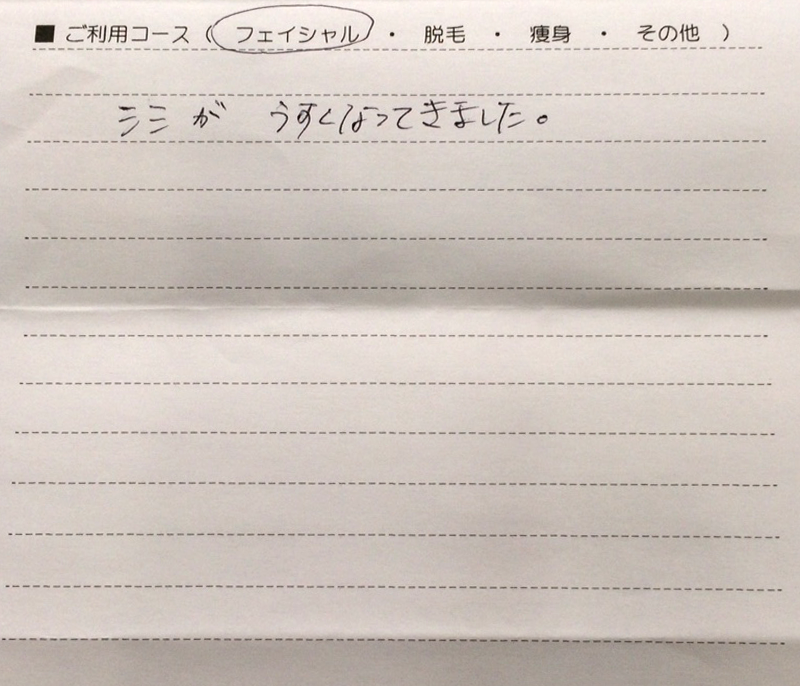 ■ ご利用コース（ フェイシャル ・ 脱毛 ・ 痩身 ・ その他 ）
シミが うすくなってきました。